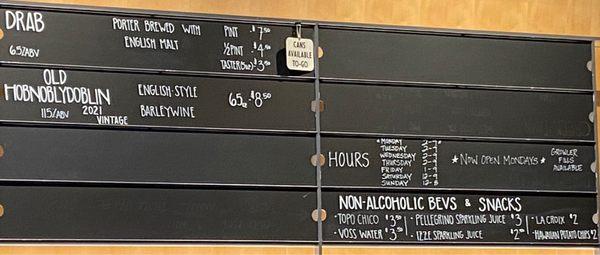 DRAB
PORTER BREWED WITH
ENGLISH MALT
6.5%ABV
PINT - $7.50
½PINT - $4
TASTER(5oz) $3
CANS
AVAILABLE
TO-GO
OLD
HOBNOBLYDOBLIN
11.5%ABV 2021
VINTAGE
ENGLISH-STYLE
BARLEYWINE
6.5oz - $8.50
HOURS
MONDAY
TUESDAY
WEDNESDAY
THURSDAY
FRIDAY
SATURDAY
SUNDAY
★NOW OPEN MONDAYS★
GROWLER
FILLS
AVAILABLE
NON-ALCOHOLIC BEVS & SNACKS
-TOPO CHICO $3.50
-VOSS WATER $3
-PELLEGRINO SPARKLING JUICE $3
-IZZE SPARKLING JUICE $2.50
-LA CROIX $2
-HAWAIIAN POTATO CHIPS $2